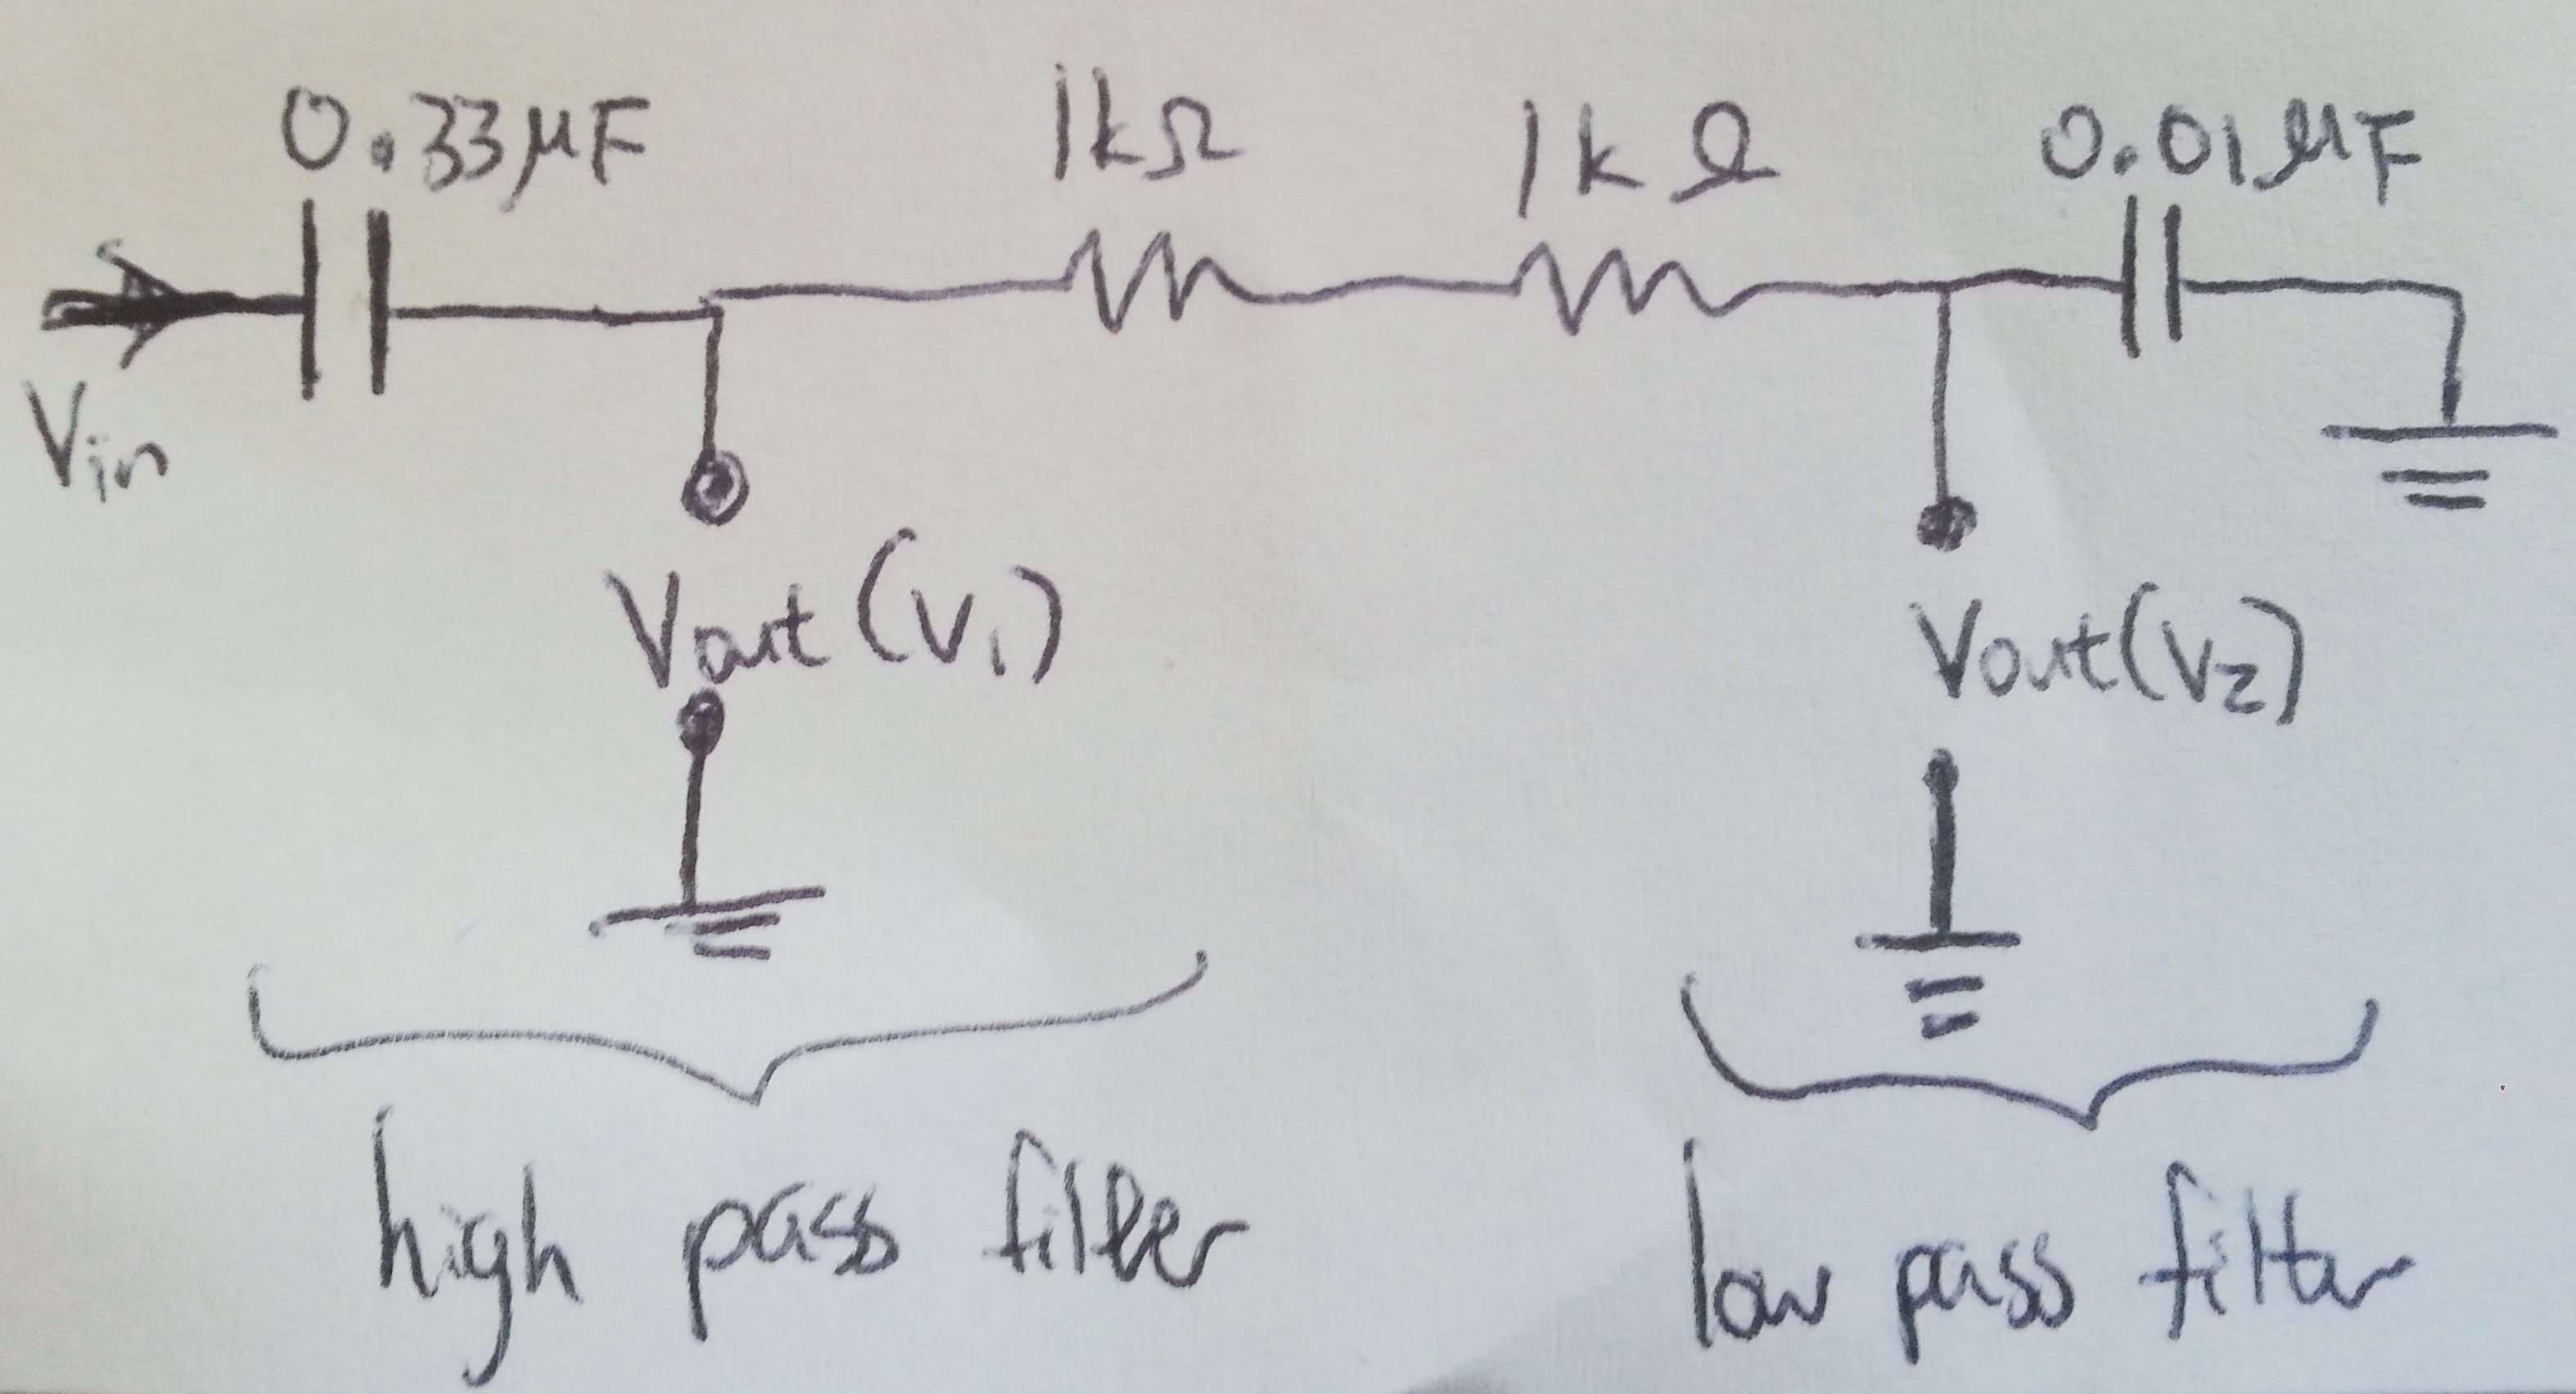 0.33μF 1kΩ 1kΩ 0.01μF
Vin
Vout (V1) Vout (V2)
high pass filter low pass filter